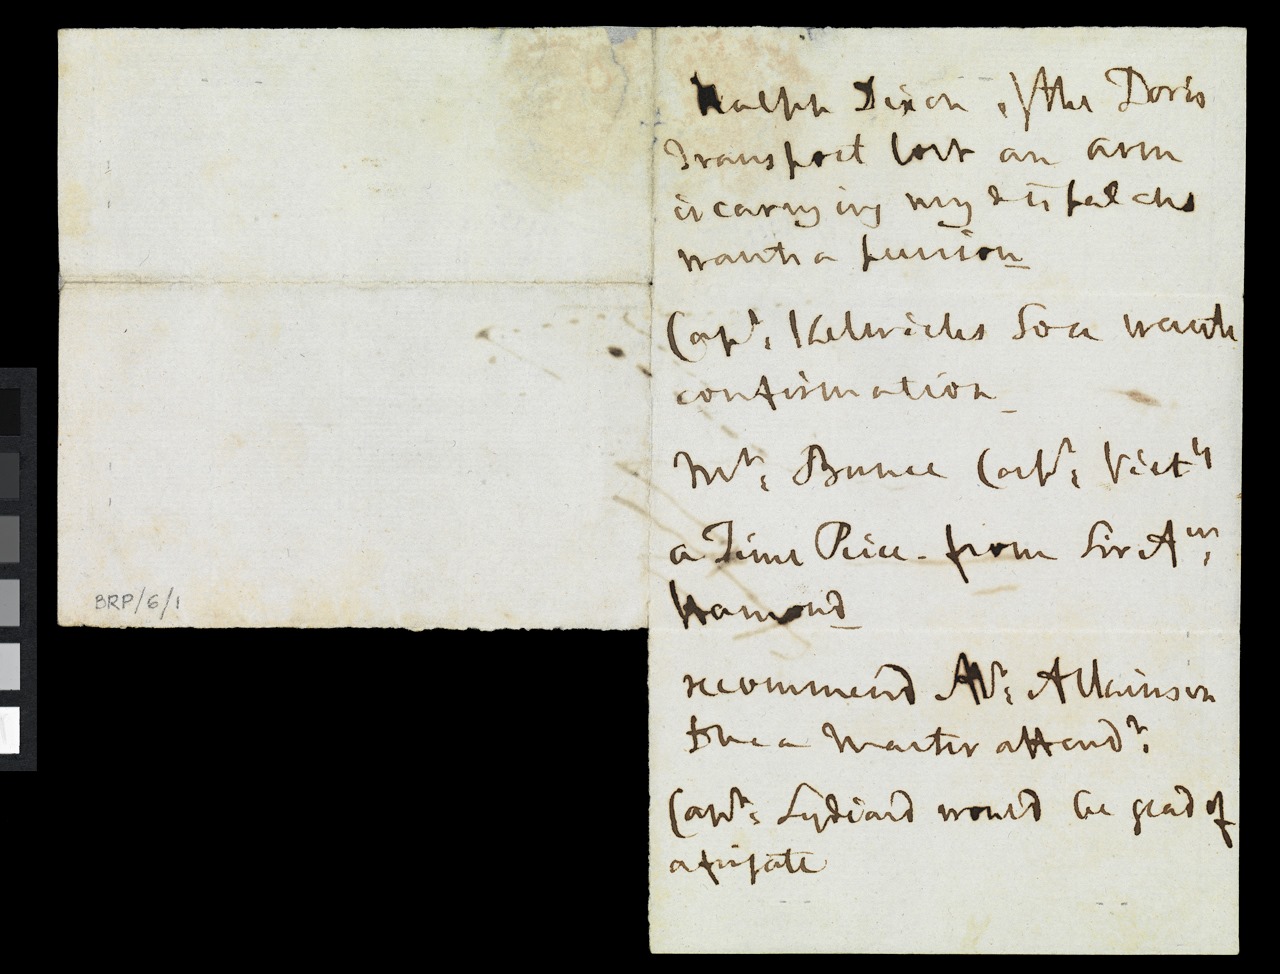 Ralph Dixon of the Doris
Transport lost an arm
is carrying my dispatches
wants a pension
Capt. Kelwicks Son wants
confirmation
Mr. Bunce Carpr. Victy
a Time Peice from Sir Aw.
Hamond
recommend Mr. Atkinson
to be a Master attendt.
Capt. Lydiard would be glad of
a frigate
BRP/6/1